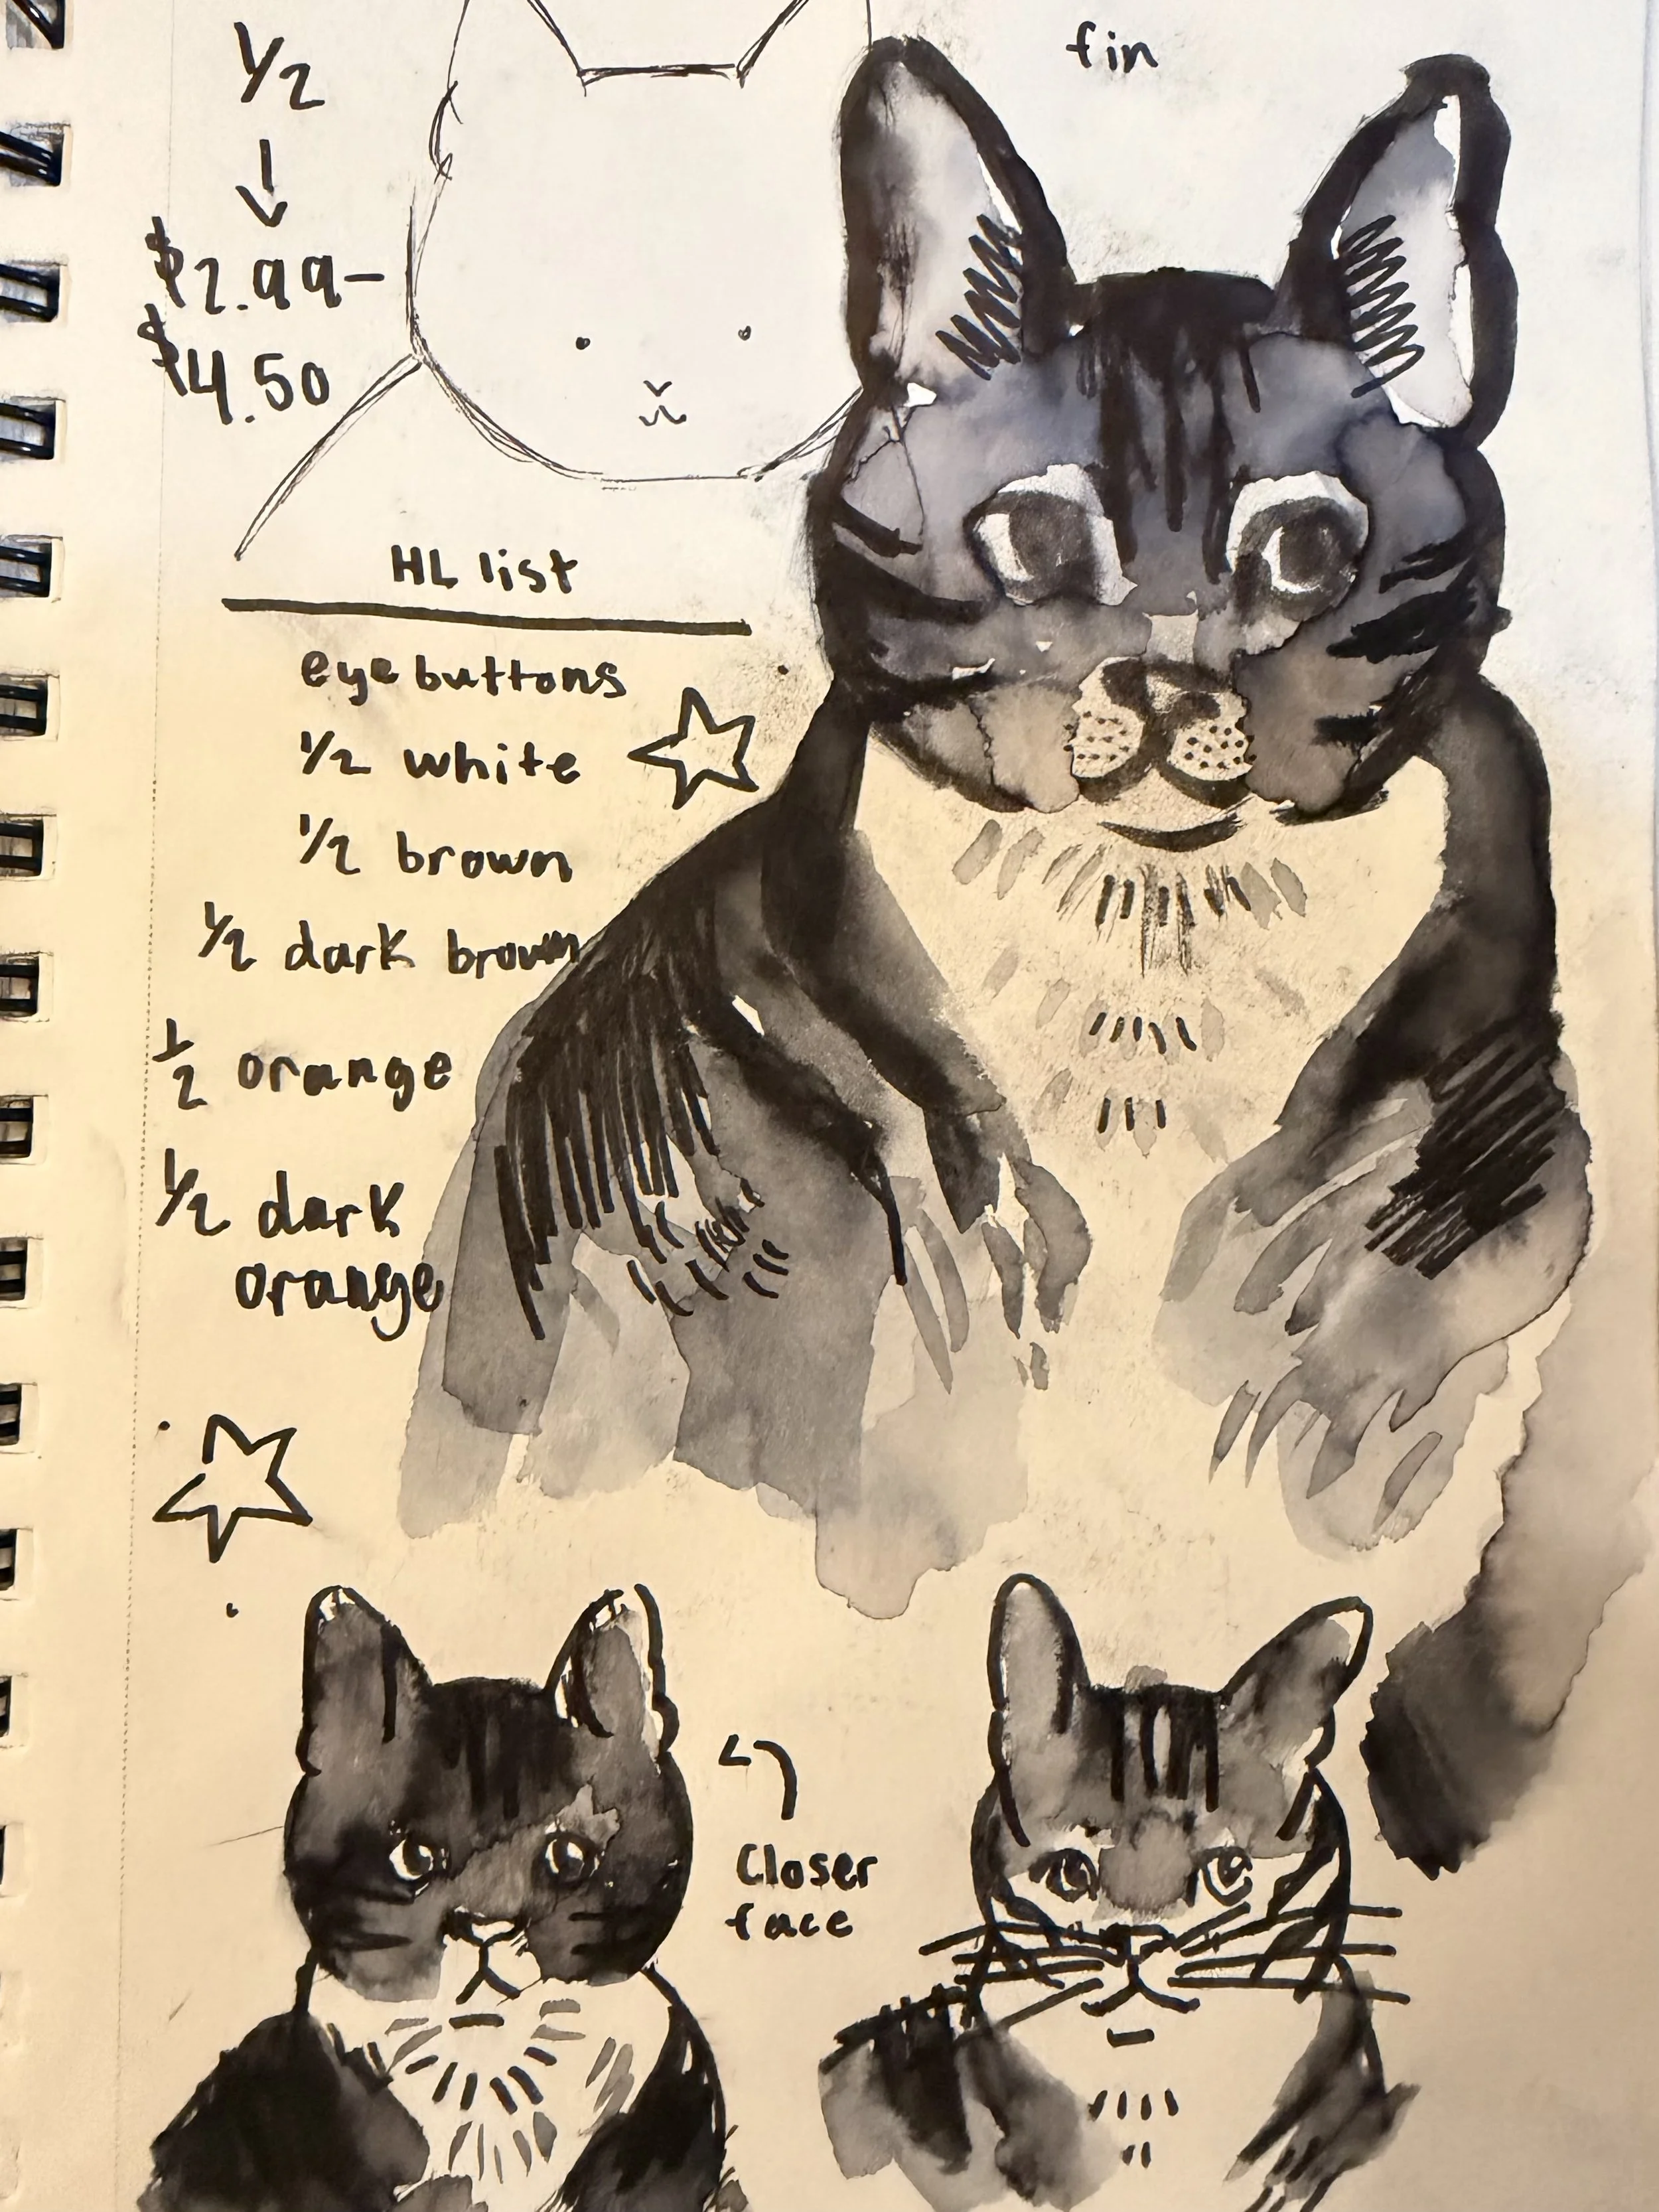 1/2
$2.99-
$4.50
fin
HL list
eye buttons
1/2 white
1/2 brown
1/2 dark brown
1/2 orange
1/2 dark
orange
Closer
face